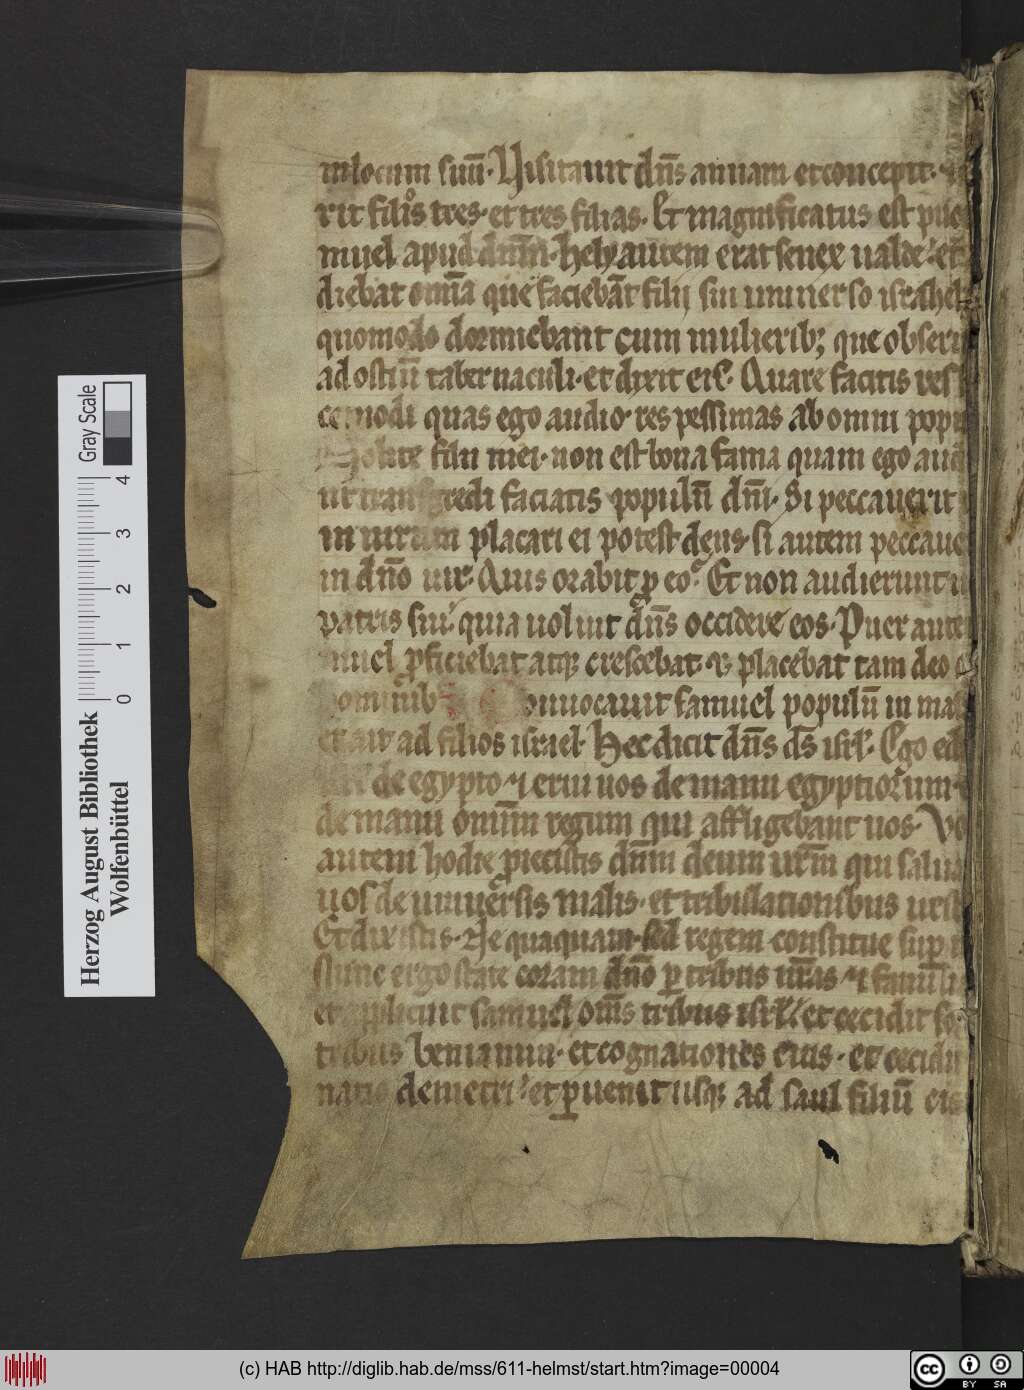 in locum suū. Visitauit dn̄s annam et concepit. ⁊
rit filios tres. et tres filias. Et magnificatus est pue
muel apud dn̄m. hely autem erat senex ualde. et
diebat om̄a que faciebāt filii sui uniuerso israhel
quomodo dormiebant cum mulierib; que obseru
ad ostiū tabernaculi. et dixit eis. Quare facitis res
cemodi quas ego audio. res pessimas ab omni popu
Nolite filii mei. non est bona fama quam ego aud
ut transgredi faciatis populū dn̄i. Si peccauerit
in uirum placari ei potest deus. si autem peccaue
in dn̄o uir. Quis orabit ꝑ eo. Et non audierunt u
patris sui. quia uoluit dn̄s occidere eos. Puer aute
muel ꝓficiebat atq; crescebat. ⁊ placebat tam deo
hominib
Conuocauit samuel populū in mas
et ait ad filios israel. Hec dicit dn̄s ds̄ isrl̄. Ego ed
de egypto. ⁊ erui uos de manu egyptiorum.
de manu omīum regum qui affligebant uos. Vo
autem hodie proiecistis dn̄m deum ur̄m qui salua
uos de uniuersis malis. et tribulationibus urīs
Et dixistis. Nequaquam. sed regem constitue suꝑ
Nunc ergo state coram dn̄o ꝑ tribus ur̄as. ⁊ familī
et applicuit samuel om̄s tribus isrl̄. et cecidit so
tribus beniamin. et cognationes eius. et cecidit
natio demetri. et ꝑuenit usq; ad saul filiū cis
Gray Scale
0 1 2 3 4
Herzog August Bibliothek
Wolfenbüttel
(c) HAB http://diglib.hab.de/mss/611-helmst/start.htm?image=00004
cc BY SA